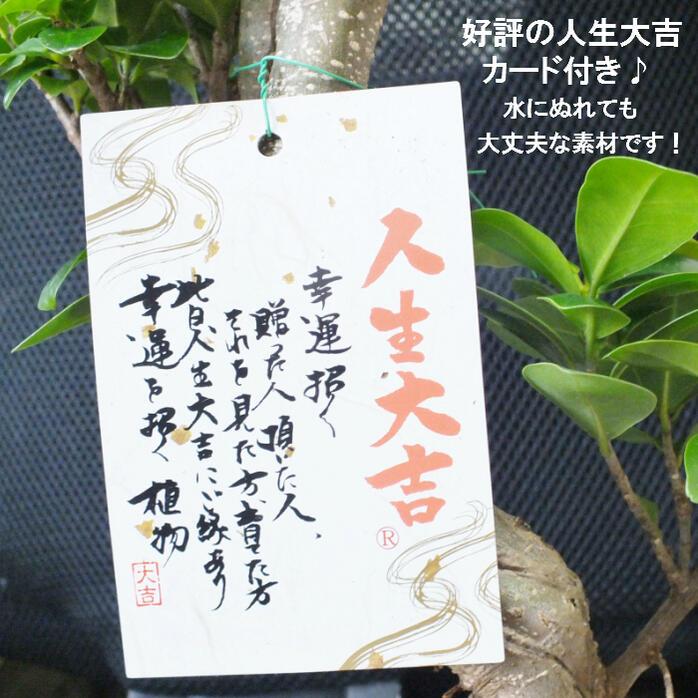 好評の人生大吉
カード付き♪
水にぬれても
大丈夫な素材です！
人生大吉
®
幸運招く
贈った人頂いた人、
それを見た方、育てた方
皆人生大吉にご縁あり
幸運を招く植物
大吉